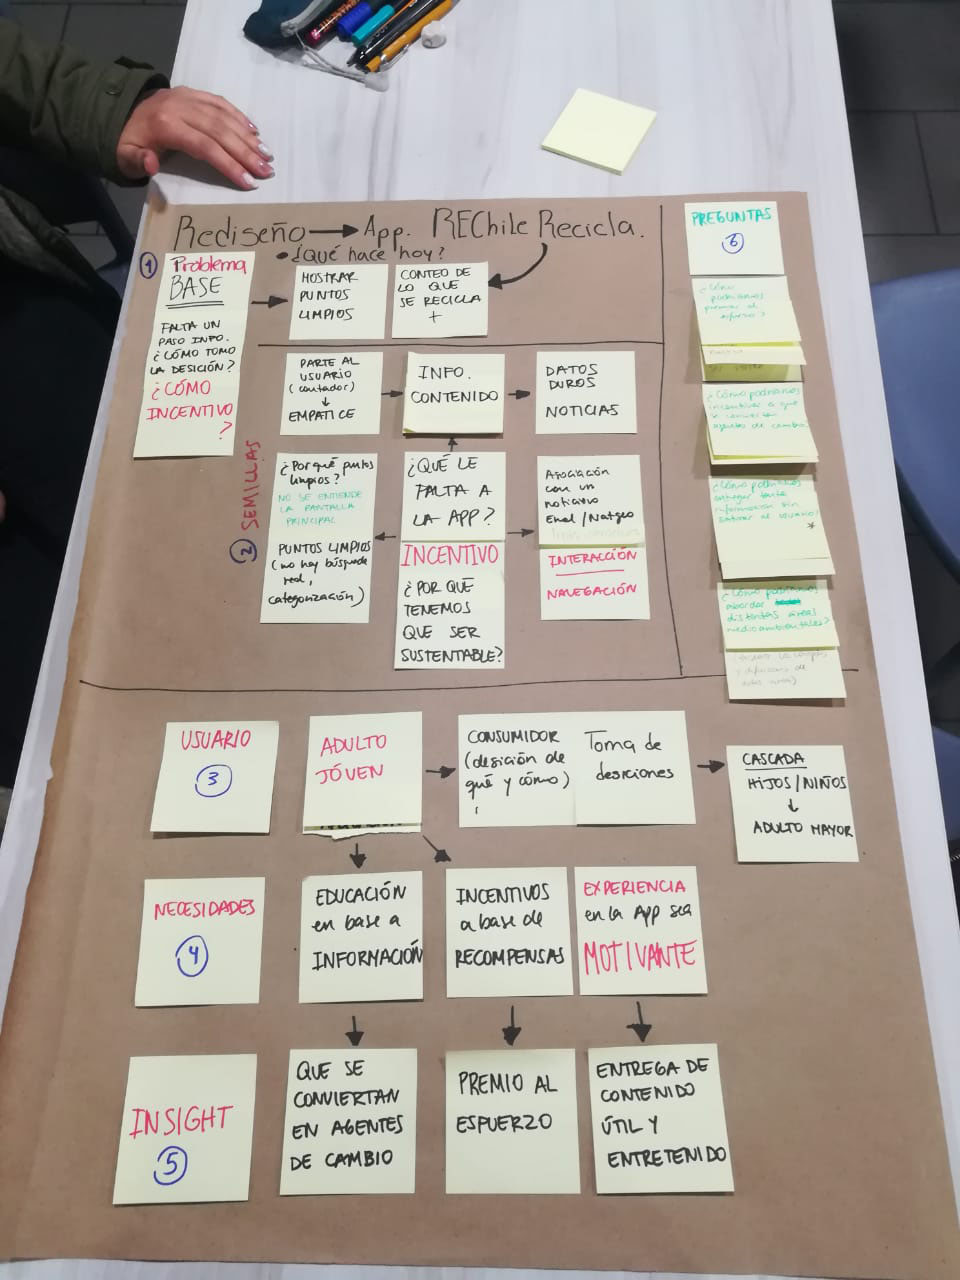 Rediseño → App. REChile Recicla.
• ¿Qué hace hoy?
1
Problema
BASE
FALTA UN
PASO INFO.
¿CÓMO TOMO
LA DESICIÓN?
¿CÓMO
INCENTIVO
?
MOSTRAR
PUNTOS
LIMPIOS
CONTEO DE
LO QUE
SE RECICLA
+
2 SEMILLAS
PARTE AL
USUARIO
(contador)
↓
EMPATICE
INFO.
CONTENIDO
DATOS
DUROS
NOTICIAS
¿Por qué puntos
limpios?
NO SE ENTIENDE
LA PANTALLA
PRINCIPAL
PUNTOS LIMPIOS
(no hay búsqueda
real,
categorización)
¿QUÉ LE
FALTA A
LA APP?
INCENTIVO
¿POR QUÉ
TENEMOS
QUE SER
SUSTENTABLE?
Asociación
con un
noticiero
Enel/Natgeo
INTERACCIÓN
NAVEGACIÓN
PREGUNTAS
6
¿Cómo
podríamos
premiar el
esfuerzo?
¿Cómo podríamos
incentivar a que
se conviertan
agentes de cambio
¿Cómo podríamos
entregar tanta
información sin
saturar al usuario?
*
¿Cómo podríamos
abordar
distintas áreas
medioambientales?
USUARIO
3
ADULTO
JÓVEN
CONSUMIDOR
(desición de
qué y cómo)
Toma de
desiciones
CASCADA
HIJOS/NIÑOS
↓
ADULTO MAYOR
NECESIDADES
4
EDUCACIÓN
en base a
INFORMACIÓN
INCENTIVOS
a base de
RECOMPENSAS
EXPERIENCIA
en la App sea
MOTIVANTE
INSIGHT
5
QUE SE
CONVIERTAN
EN AGENTES
DE CAMBIO
PREMIO AL
ESFUERZO
ENTREGA DE
CONTENIDO
ÚTIL Y
ENTRETENIDO